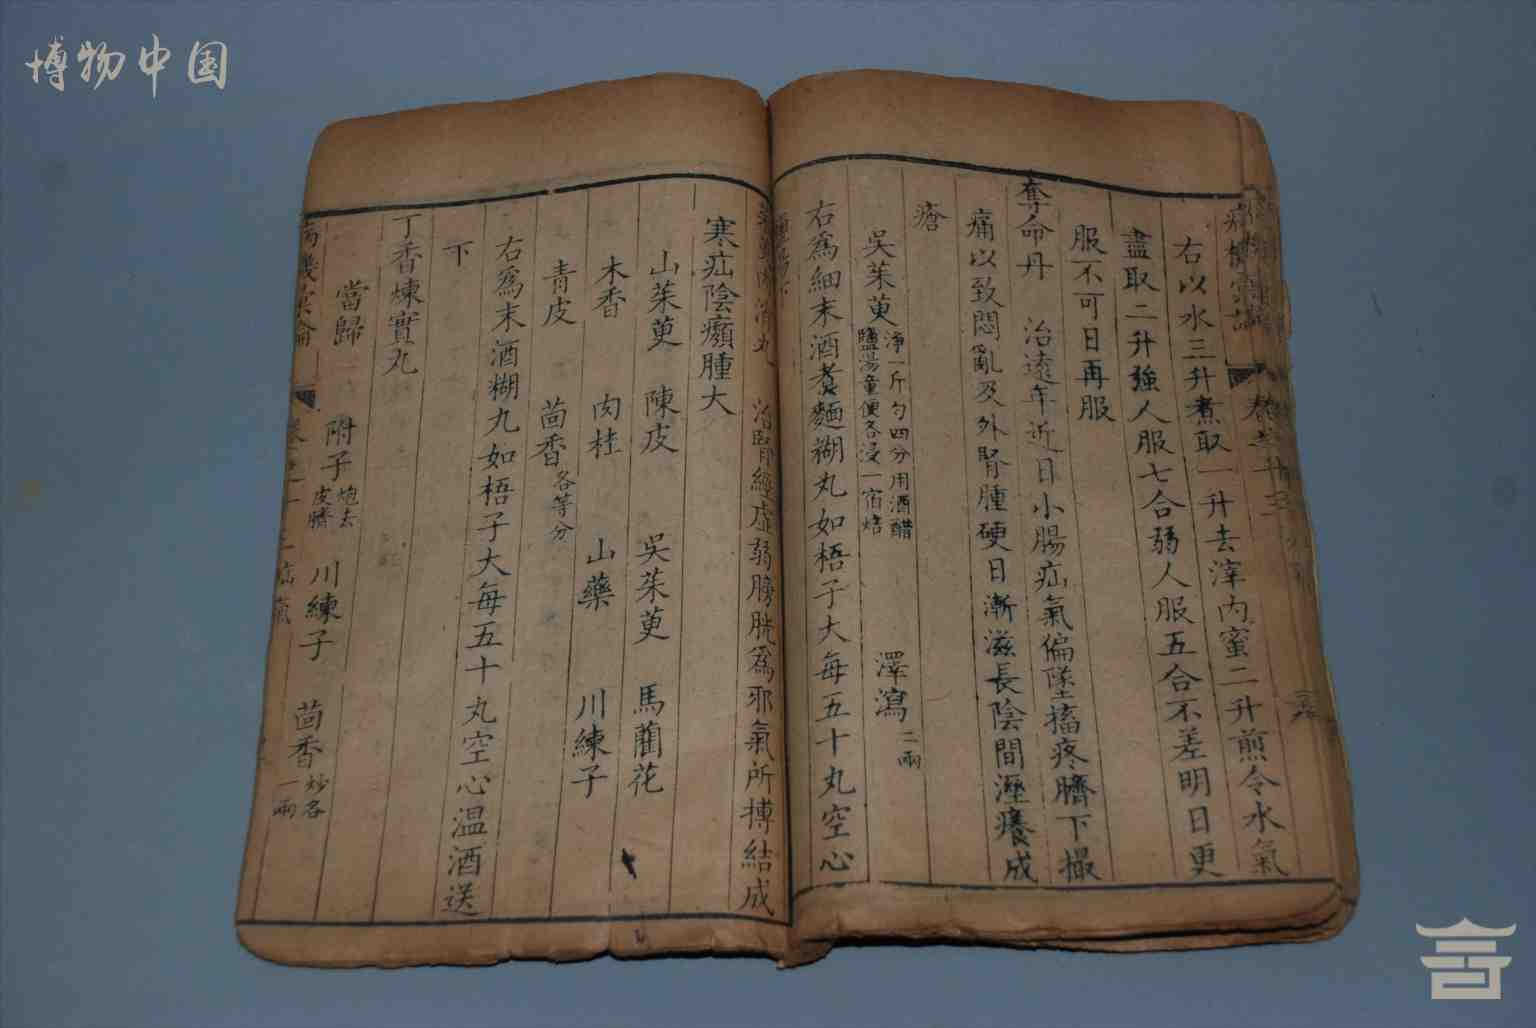 博物中国
右以水三升煮取一升去滓內蜜二升煎令水氣
盡取二升強人服七合弱人服五合不差明日更
服不可日再服
奪命丹 治遠年近日小腸疝氣偏墜搐疼臍下撮
痛以致悶亂及外腎腫硬日漸滋長陰間溼癢成
瘡
吳茱萸 淨一斤勻四分用酒醋
鹽湯童便各浸一宿焙
澤瀉 二兩
右為細末酒煮麵糊丸如梧子大每五十丸空心
治腎經虛弱膀胱為邪氣所摶結成
寒疝陰㿗腫大
山茱萸 陳皮 吳茱萸 馬藺花
木香 肉桂 山藥 川練子
青皮 茴香 各等分
右為末酒糊丸如梧子大每五十丸空心温酒送
下
丁香煉實丸
當歸 附子 炮去皮臍 川練子 茴香 炒各一兩